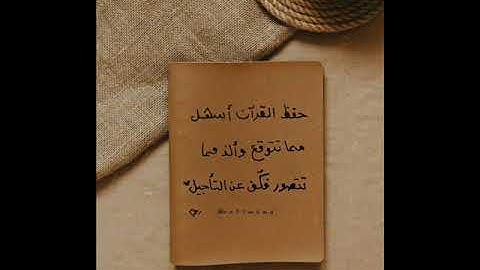 حفظ القرآن أسهل
مما تتوقع وألذ مما
تتصور فكُفّ عن التأجيل